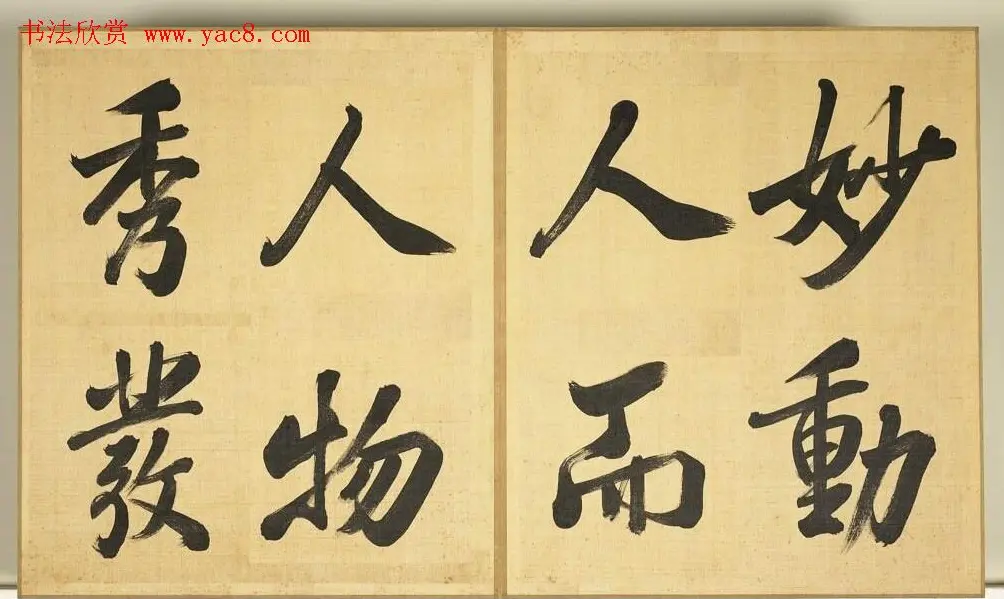 书法欣赏 www.yac8.com
妙動
人而
人物
秀發